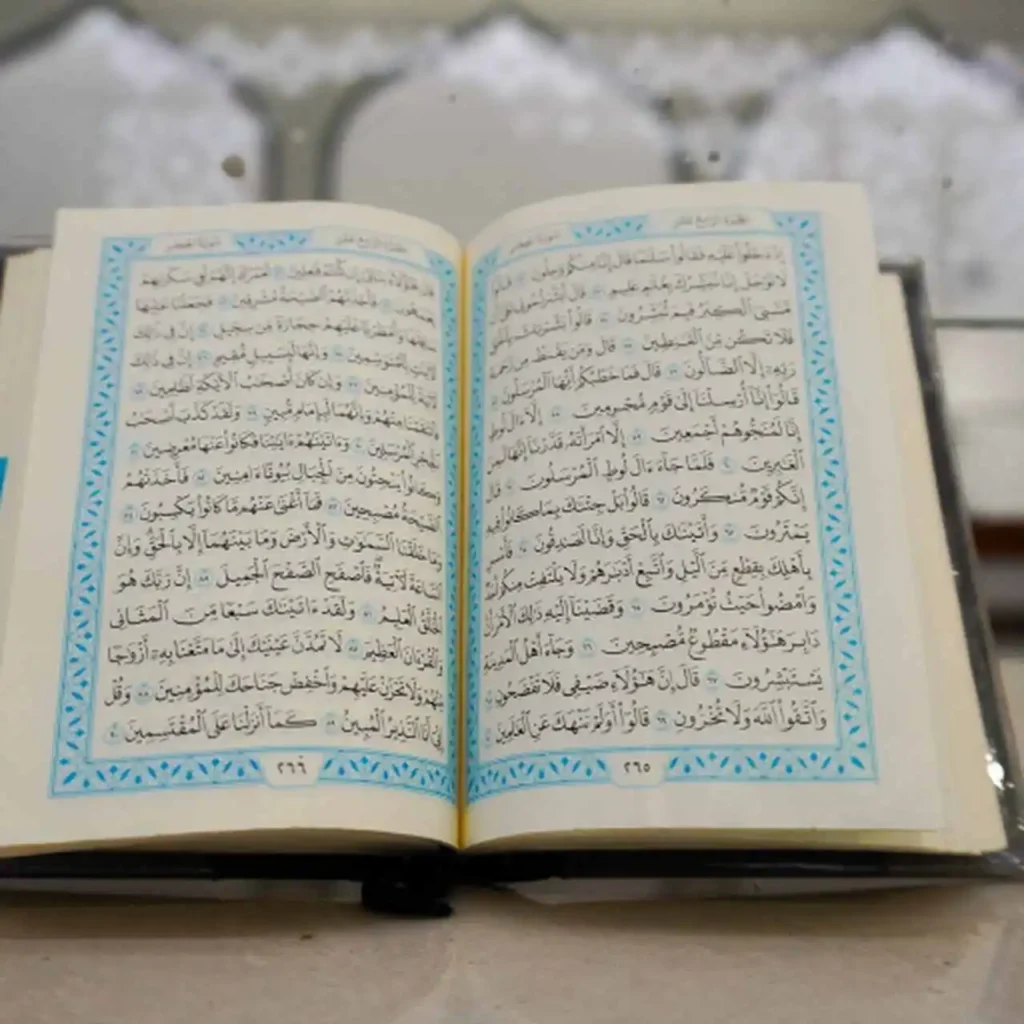 الجزء الرابع عشر
سورة الحجر
إِذْ دَخَلُوا عَلَيْهِ فَقَالُوا سَلَٰمًا قَالَ إِنَّا مِنكُمْ وَجِلُونَ ٥٢ قَالُوا
لَا تَوْجَلْ إِنَّا نُبَشِّرُكَ بِغُلَٰمٍ عَلِيمٍ ٥٣ قَالَ أَبَشَّرْتُمُونِى عَلَىٰ أَن
مَّسَّنِىَ ٱلْكِبَرُ فَبِمَ تُبَشِّرُونَ ٥٤ قَالُوا بَشَّرْنَٰكَ بِٱلْحَقِّ
فَلَا تَكُن مِّنَ ٱلْقَٰنِطِينَ ٥٥ قَالَ وَمَن يَقْنَطُ مِن رَّحْمَةِ
رَبِّهِۦٓ إِلَّا ٱلضَّآلُّونَ ٥٦ قَالَ فَمَا خَطْبُكُمْ أَيُّهَا ٱلْمُرْسَلُونَ ٥٧
قَالُوٓا إِنَّآ أُرْسِلْنَآ إِلَىٰ قَوْمٍ مُّجْرِمِينَ ٥٨ إِلَّآ ءَالَ لُوطٍ
إِنَّا لَمُنَجُّوهُمْ أَجْمَعِينَ ٥٩ إِلَّا ٱمْرَأَتَهُۥ قَدَّرْنَآ إِنَّهَا لَمِنَ
ٱلْغَٰبِرِينَ ٦٠ فَلَمَّا جَآءَ ءَالَ لُوطٍ ٱلْمُرْسَلُونَ ٦١ قَالَ
إِنَّكُمْ قَوْمٌ مُّنكَرُونَ ٦٢ قَالُوا بَلْ جِئْنَٰكَ بِمَا كَانُوا فِيهِ
يَمْتَرُونَ ٦٣ وَأَتَيْنَٰكَ بِٱلْحَقِّ وَإِنَّا لَصَٰدِقُونَ ٦٤ فَأَسْرِ
بِأَهْلِكَ بِقِطْعٍ مِّنَ ٱلَّيْلِ وَٱتَّبِعْ أَدْبَٰرَهُمْ وَلَا يَلْتَفِتْ مِنكُمْ أَحَدٌ
وَٱمْضُوا حَيْثُ تُؤْمَرُونَ ٦٥ وَقَضَيْنَآ إِلَيْهِ ذَٰلِكَ ٱلْأَمْرَ أَنَّ
دَابِرَ هَٰٓؤُلَآءِ مَقْطُوعٌ مُّصْبِحِينَ ٦٦ وَجَآءَ أَهْلُ ٱلْمَدِينَةِ
يَسْتَبْشِرُونَ ٦٧ قَالَ إِنَّ هَٰٓؤُلَآءِ ضَيْفِى فَلَا تَفْضَحُونِ ٦٨
وَٱتَّقُوا ٱللَّهَ وَلَا تُخْزُونِ ٦٩ قَالُوٓا أَوَلَمْ نَنْهَكَ عَنِ ٱلْعَٰلَمِينَ ٧٠
٢٦٥
الجزء الرابع عشر
سورة الحجر
قَالَ هَٰٓؤُلَآءِ بَنَاتِىٓ إِن كُنتُمْ فَٰعِلِينَ ٧١ لَعَمْرُكَ إِنَّهُمْ لَفِى سَكْرَتِهِمْ
يَعْمَهُونَ ٧٢ فَأَخَذَتْهُمُ ٱلصَّيْحَةُ مُشْرِقِينَ ٧٣ فَجَعَلْنَا عَٰلِيَهَا
سَافِلَهَا وَأَمْطَرْنَا عَلَيْهِمْ حِجَارَةً مِّن سِجِّيلٍ ٧٤ إِنَّ فِى ذَٰلِكَ
لَءَايَٰتٍ لِّلْمُتَوَسِّمِينَ ٧٥ وَإِنَّهَا لَبِسَبِيلٍ مُّقِيمٍ ٧٦ إِنَّ فِى ذَٰلِكَ
لَءَايَةً لِّلْمُؤْمِنِينَ ٧٧ وَإِن كَانَ أَصْحَٰبُ ٱلْأَيْكَةِ لَظَٰلِمِينَ ٧٨
فَٱنتَقَمْنَا مِنْهُمْ وَإِنَّهُمَا لَبِإِمَامٍ مُّبِينٍ ٧٩ وَلَقَدْ كَذَّبَ أَصْحَٰبُ
ٱلْحِجْرِ ٱلْمُرْسَلِينَ ٨٠ وَءَاتَيْنَٰهُمْ ءَايَٰتِنَا فَكَانُوا عَنْهَا مُعْرِضِينَ ٨١
وَكَانُوا يَنْحِتُونَ مِنَ ٱلْجِبَالِ بُيُوتًا ءَامِنِينَ ٨٢ فَأَخَذَتْهُمُ
ٱلصَّيْحَةُ مُصْبِحِينَ ٨٣ فَمَآ أَغْنَىٰ عَنْهُم مَّا كَانُوا يَكْسِبُونَ ٨٤
وَمَا خَلَقْنَا ٱلسَّمَٰوَٰتِ وَٱلْأَرْضَ وَمَا بَيْنَهُمَآ إِلَّا بِٱلْحَقِّ وَإِنَّ
ٱلسَّاعَةَ لَءَاتِيَةٌ فَٱصْفَحِ ٱلصَّفْحَ ٱلْجَمِيلَ ٨٥ إِنَّ رَبَّكَ هُوَ
ٱلْخَلَّٰقُ ٱلْعَلِيمُ ٨٦ وَلَقَدْ ءَاتَيْنَٰكَ سَبْعًا مِّنَ ٱلْمَثَانِى
وَٱلْقُرْءَانَ ٱلْعَظِيمَ ٨٧ لَا تَمُدَّنَّ عَيْنَيْكَ إِلَىٰ مَا مَتَّعْنَا بِهِۦٓ أَزْوَٰجًا
مِّنْهُمْ وَلَا تَحْزَنْ عَلَيْهِمْ وَٱخْفِضْ جَنَاحَكَ لِلْمُؤْمِنِينَ ٨٨ وَقُلْ
إِنِّىٓ أَنَا ٱلنَّذِيرُ ٱلْمُبِينُ ٨٩ كَمَآ أَنزَلْنَا عَلَى ٱلْمُقْتَسِمِينَ ٩٠
٢٦٦